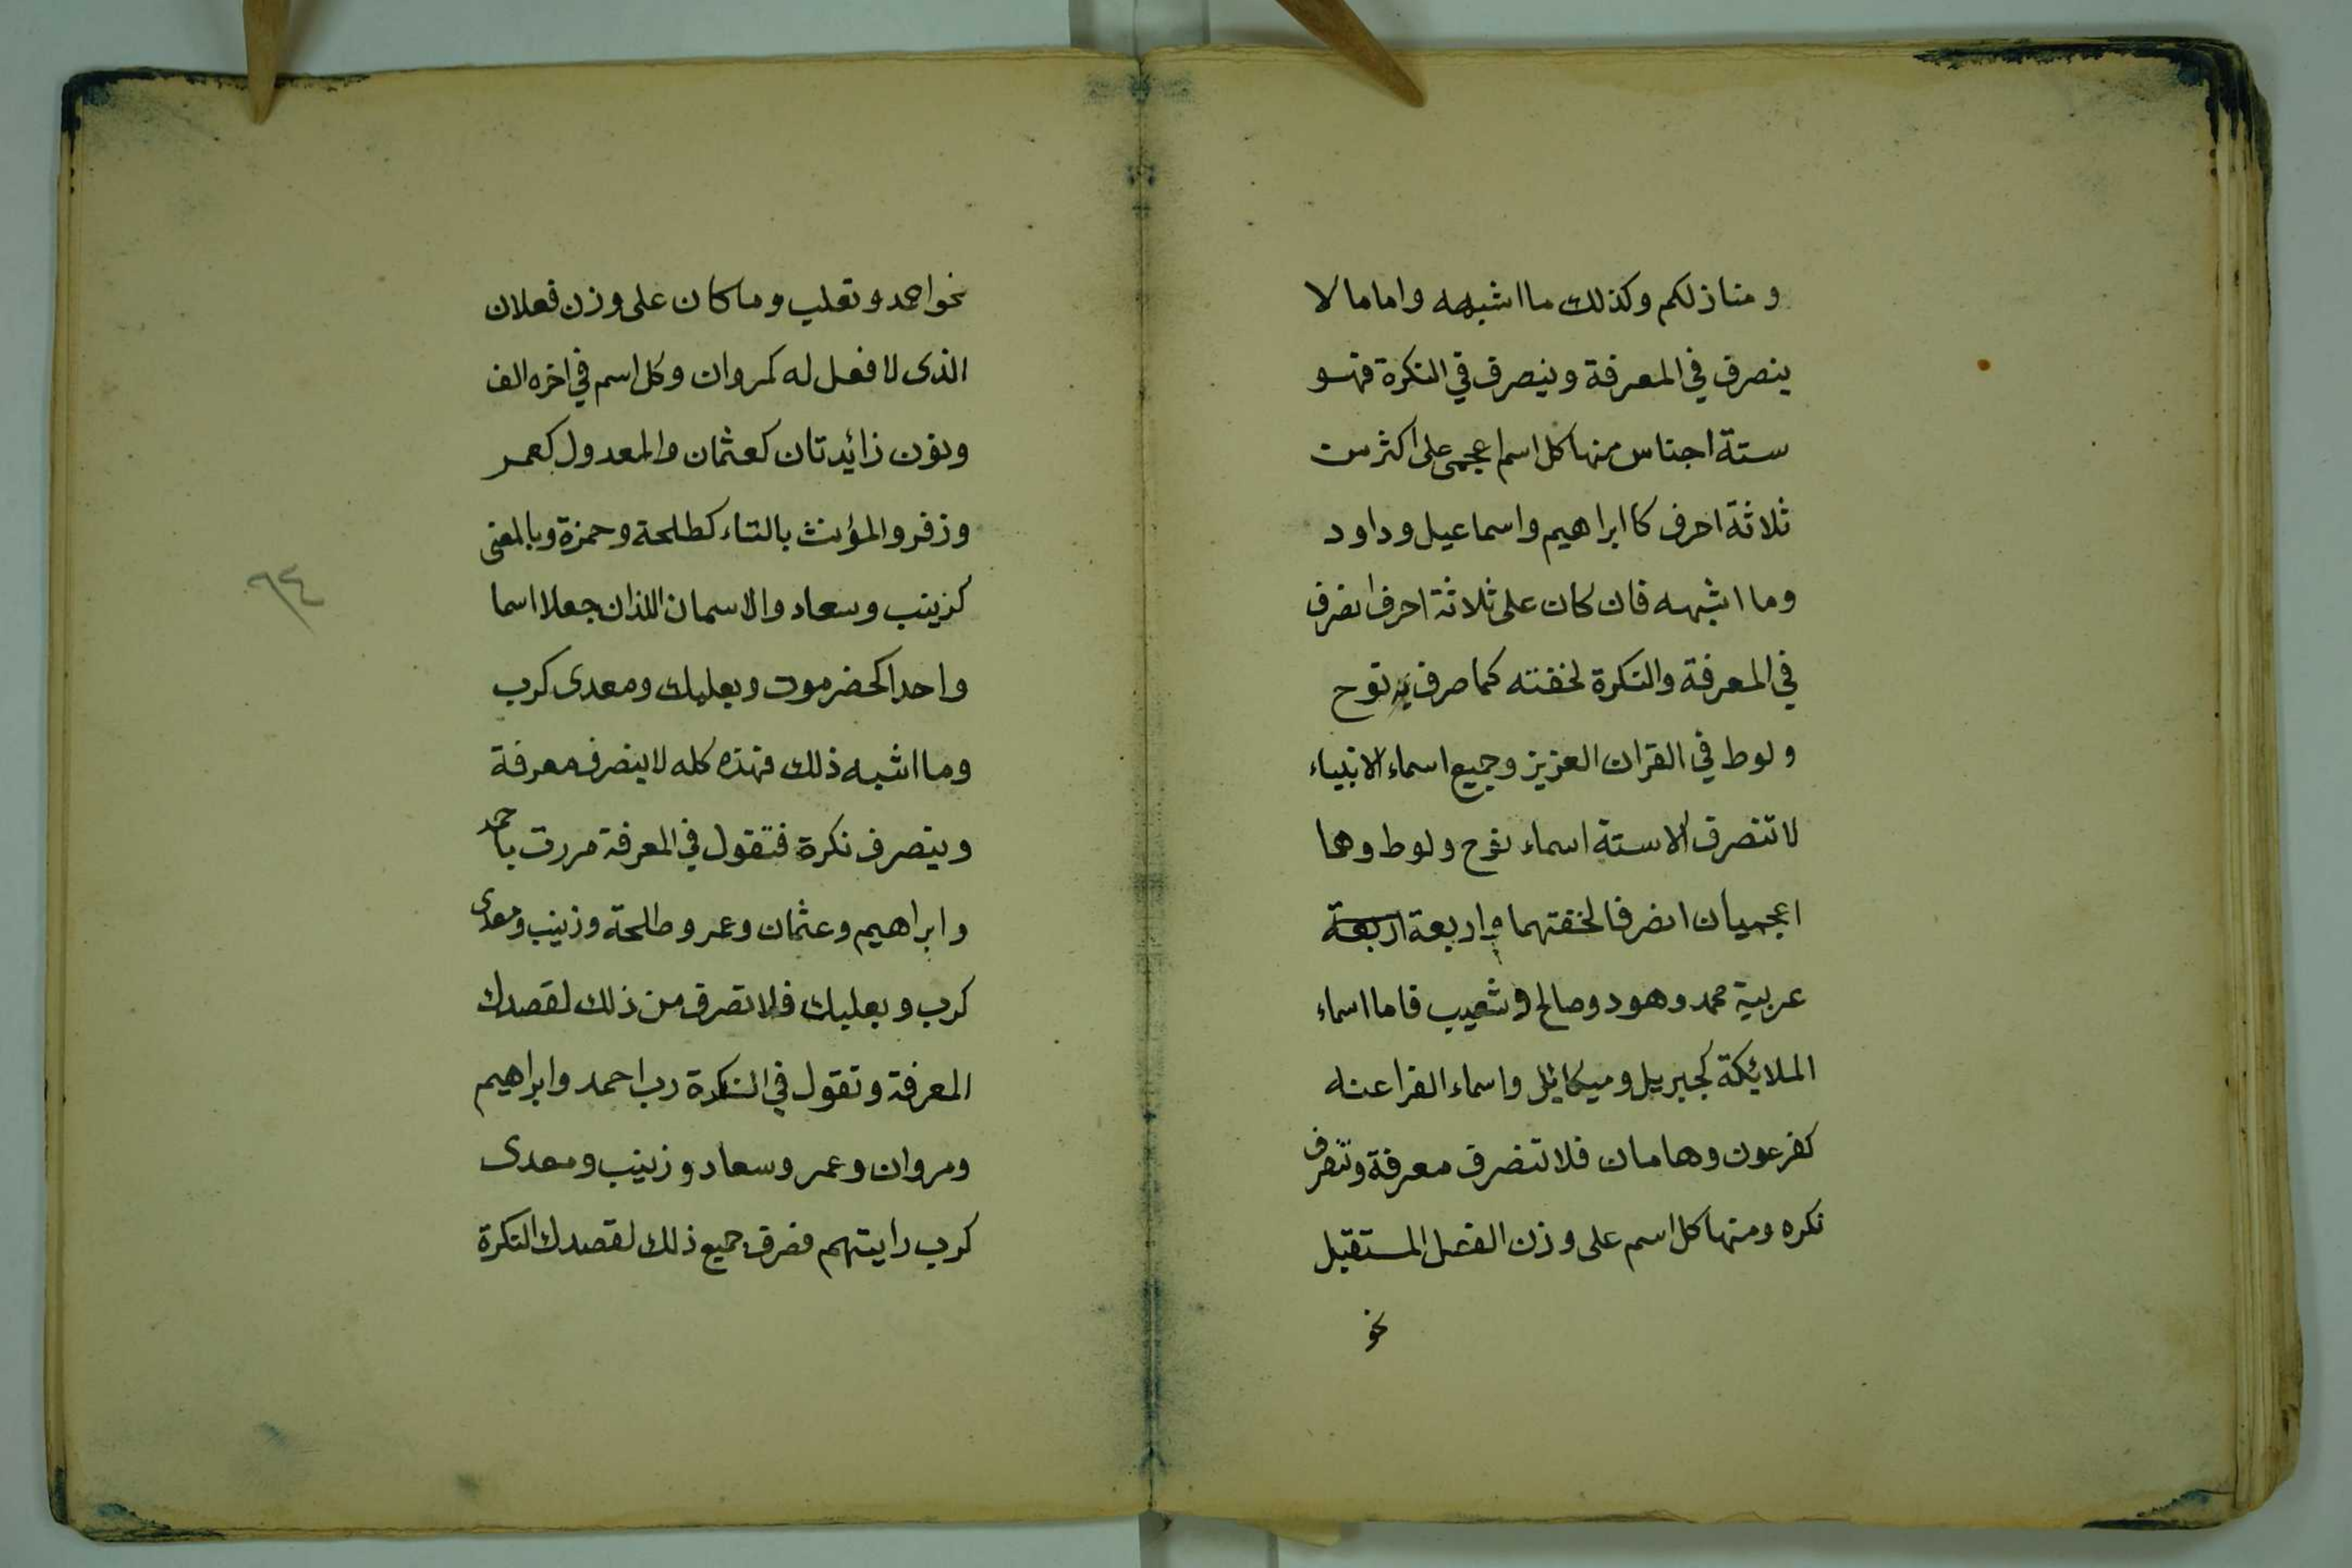 و منازلكم وكذلك ما اشبهه واما ما لا
ينصرف في المعرفة وينصرف في النكرة فهو
ستة اجناس منها كل اسم اعجمي على اكثر من
ثلاثة احرف كا ابراهيم واسماعيل وداود
وما اشبهه فان كان على ثلاثة احرف انصرف
في المعرفة والنكرة لخفته كما صرف نوح
ولوط في القران العزيز وجميع اسماء الانبياء
لا تنصرف الا ستة اسماء نوح ولوط وهما
اعجميان انصرفا لخفتهما واربعة اربعة
عربية محمد وهود وصالح وشعيب فاما اسماء
الملائكة كجبريل وميكائل واسماء الفراعنه
كفرعون وهامان فلا تنصرف معرفة وتنصرف
نكره ومنها كل اسم على وزن الفعل المستقبل
نحو
نحو احمد وتغلب وما كان على وزن فعلان
الذى لا فعل له كمروان وكل اسم في اخره الف
ونون زائدتان كعثمان والمعدول كعمر
وزفر والمؤنث بالتاء كطلحة وحمزة وبالمعنى
كزينب وسعاد والاسمان اللذان جعلا اسما
واحدا كحضرموت وبعلبك ومعدى كرب
وما اشبه ذلك فهذه كله لا ينصرف معرفة
وينصرف نكرة فتقول في المعرفة مررت باحمد
وابراهيم وعثمان وعمر وطلحة وزينب ومعدى
كرب وبعلبك فلا تصرف من ذلك لقصدك
المعرفة وتقول في النكرة رب احمد وابراهيم
ومروان وعمر وسعاد وزينب ومعدى
كرب رايتهم فصرف جميع ذلك لقصدك النكرة
٩٤